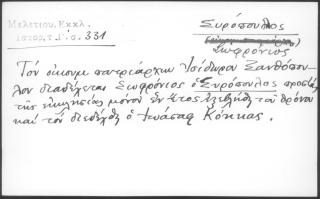 Μελετίου, Εκκλ.
Ιστορ, τ. Γ. σ. 331
Συρόπουλος
Σωφρόνιος
Τόν οἰκουμ. πατριάρχην Ἰσίδωρον Ξανθόπου-
λον διαδέχεται Σωφρόνιος ὁ Συρόπουλος προστάς
τῆς ἐκκλησίας μόνον ἕν ἔτος ἐξεβλήθη τοῦ θρόνου
καί τόν διεδέχθη ὁ Ἰωάσαφ Κόκκας.